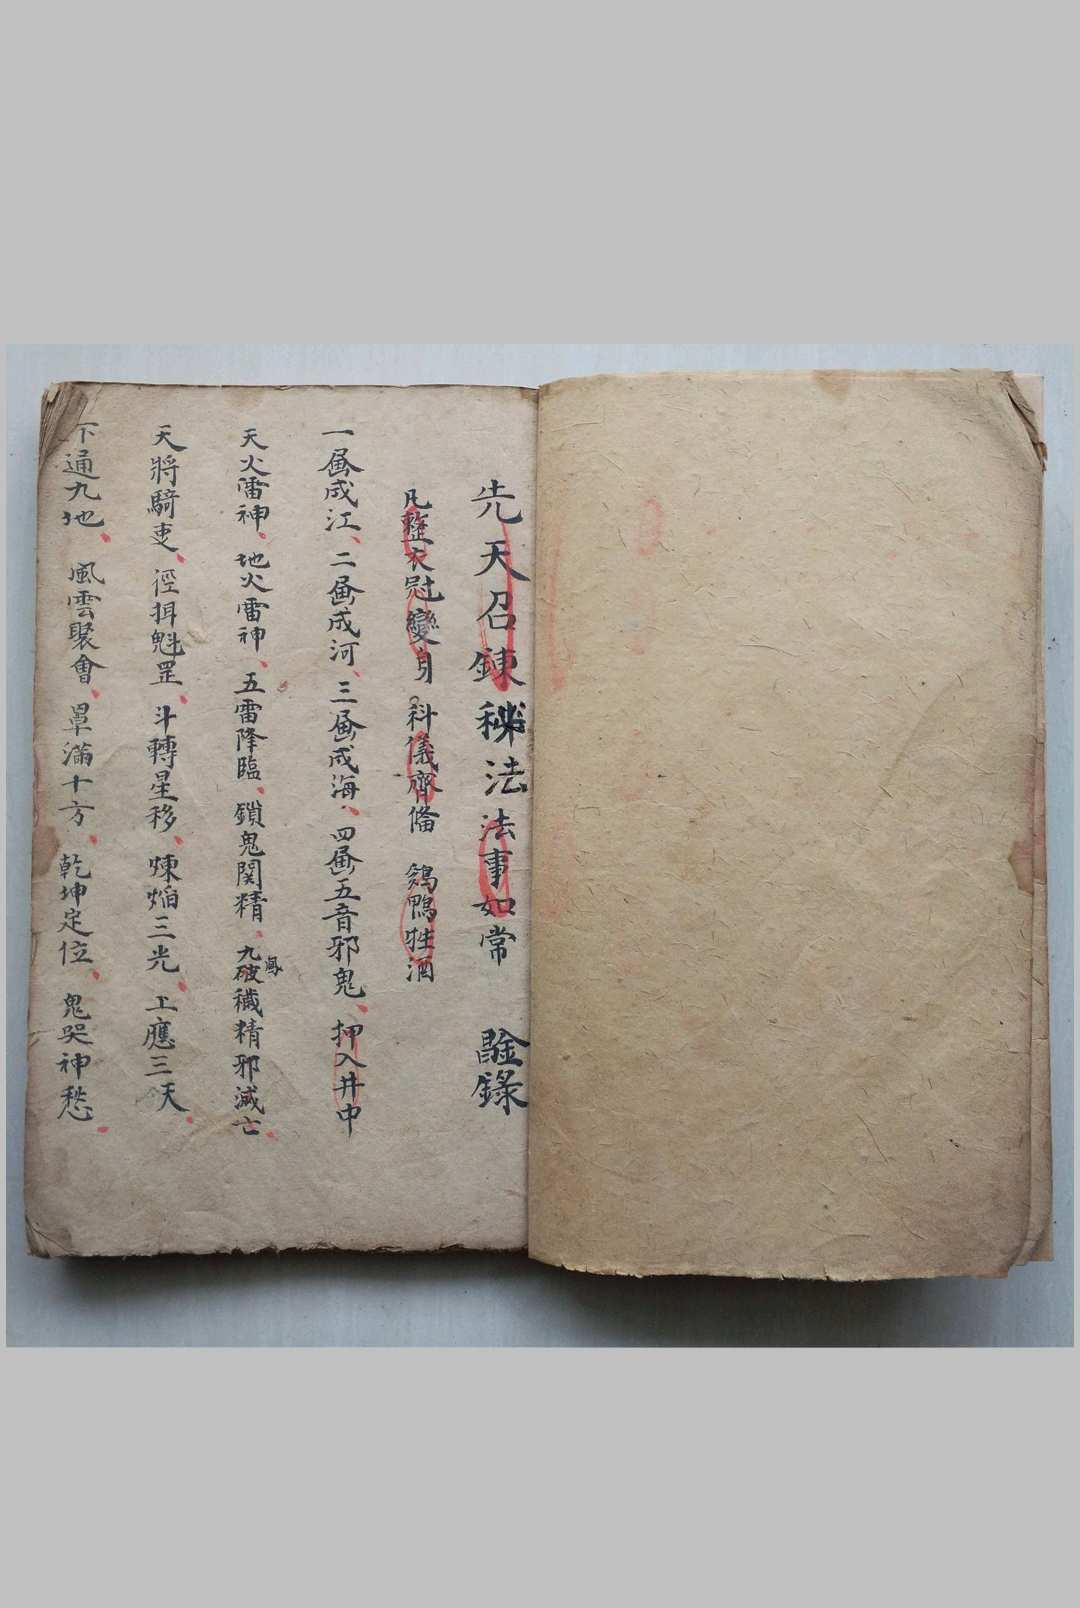 先天召鍊秘法法事如常 㗴錄
凡整衣冠變身 科儀齊俻 鷄鴨牲酒
一画成江、二画成河、三画成海、四画五音邪鬼、押入井中
天火雷神、地火雷神、五雷降臨、鎖鬼関精、九鳳破穢精邪滅亡、
天將騎吏、徑揖魁罡、斗轉星移、煉焰三光、上應三天、
下通九地、風雲聚會、罩滿十方、乾坤定位、鬼哭神愁、